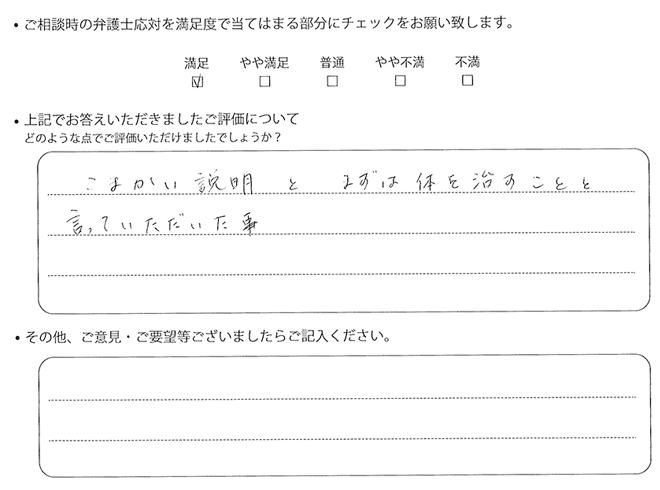 ・ご相談時の弁護士応対を満足度で当てはまる部分にチェックをお願い致します。
満足 やや満足 普通 やや不満 不満
☑ □ □ □ □
・上記でお答えいただきましたご評価について
どのような点でご評価いただけましたでしょうか？
こまかい説明と まずは体を治すことと
言っていただいた事
・その他、ご意見・ご要望等ございましたらご記入ください。